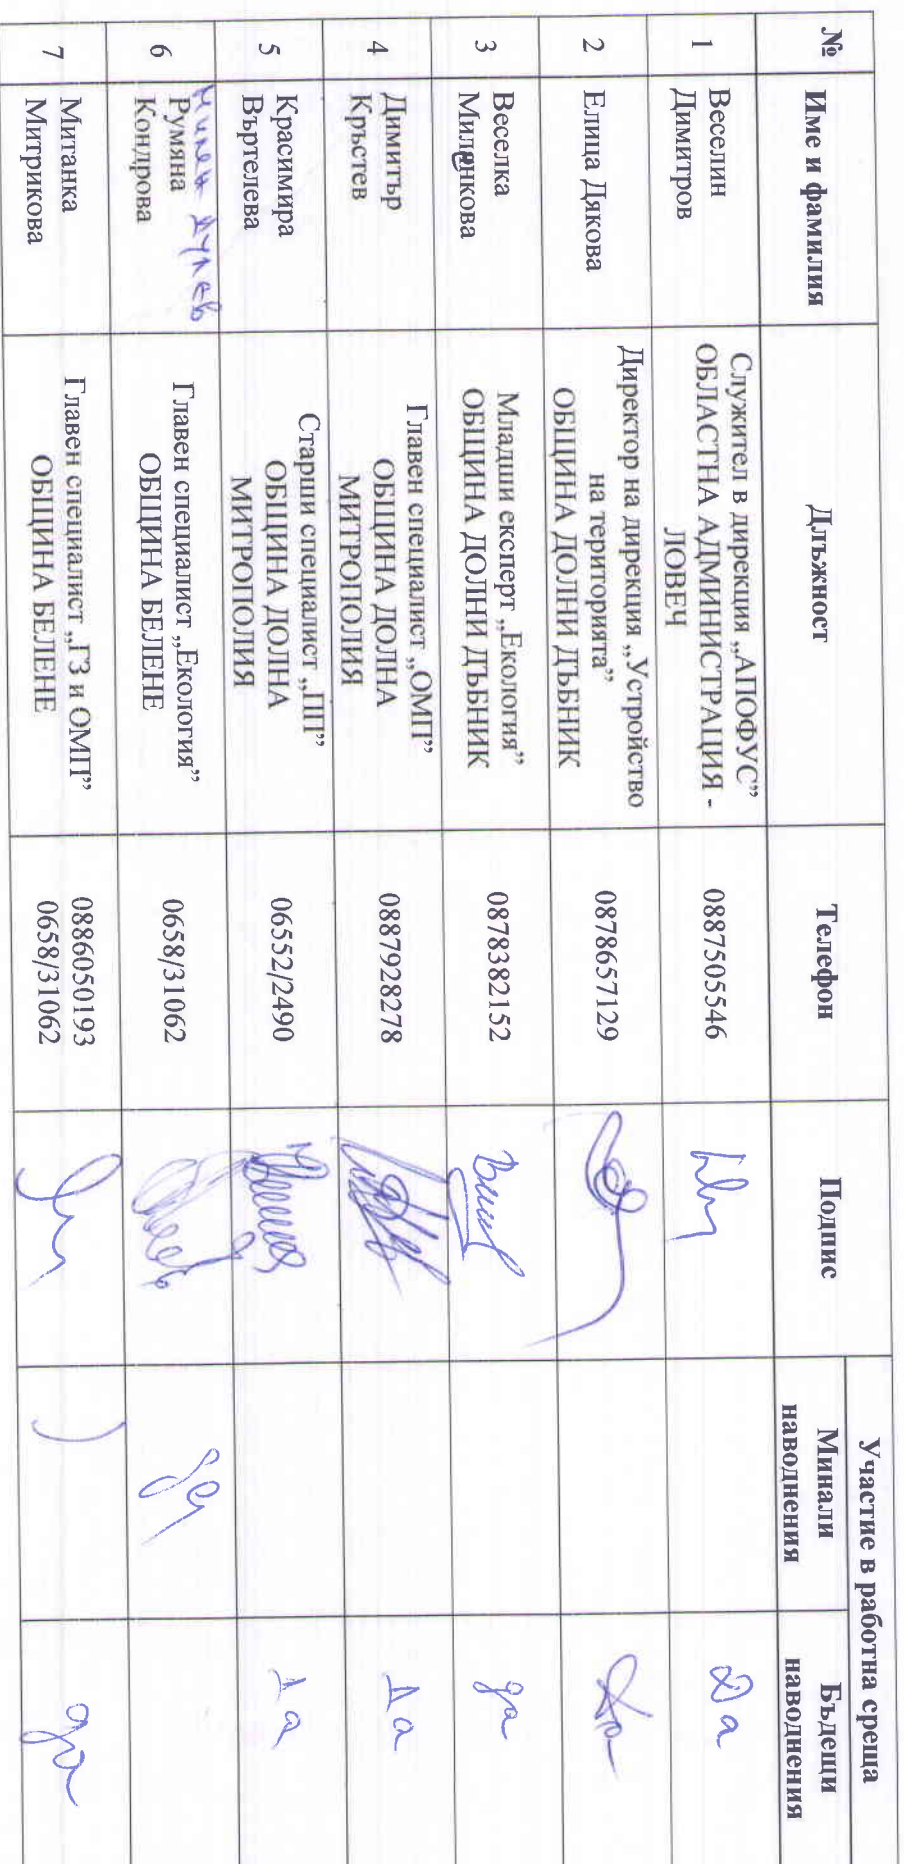 №
Име и фамилия
Длъжност
Телефон
Подпис
Участие в работна среща
Минали
наводнения
Бъдещи
наводнения
1
Веселин
Димитров
Служител в дирекция „АПОФУС”
ОБЛАСТНА АДМИНИСТРАЦИЯ -
ЛОВЕЧ
0887505546
Да
2
Елица Дякова
Директор на дирекция „Устройство
на територията”
ОБЩИНА ДОЛНИ ДЪБНИК
0878657129
Да
3
Веселка
Миленкова
Младши експерт „Екология”
ОБЩИНА ДОЛНИ ДЪБНИК
0878382152
да
4
Димитър
Кръстев
Главен специалист „ОМП”
ОБЩИНА ДОЛНА
МИТРОПОЛИЯ
0887928278
Да
5
Красимира
Въртелева
Старши специалист „ПП”
ОБЩИНА ДОЛНА
МИТРОПОЛИЯ
06552/2490
Да
6
Милен Дулев
Румяна
Кондрова
Главен специалист „Екология”
ОБЩИНА БЕЛЕНЕ
0658/31062
да
7
Митанка
Митрикова
Главен специалист „ГЗ и ОМП”
ОБЩИНА БЕЛЕНЕ
0886050193
0658/31062
да